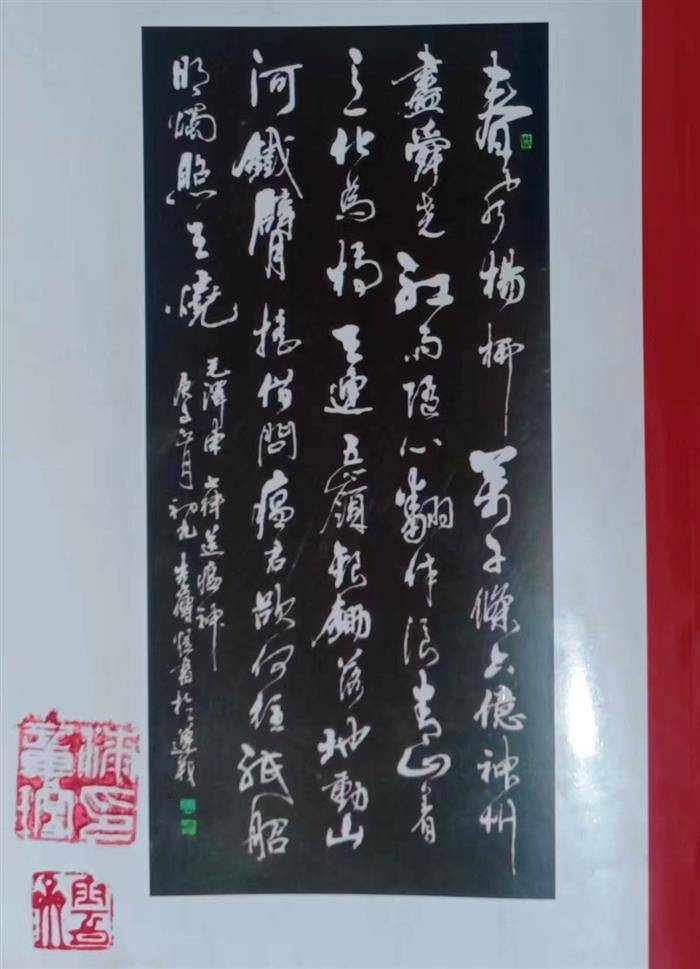 春风楊柳萬千條六億神州
盡舜尧红雨随心翻作浪青山着
意化為橋天連五嶺銀鋤落地動山
河鐵臂搖借問瘟君欲何往紙船
明燭照天燒
毛澤東七律送瘟神
庚子六月初九 書於